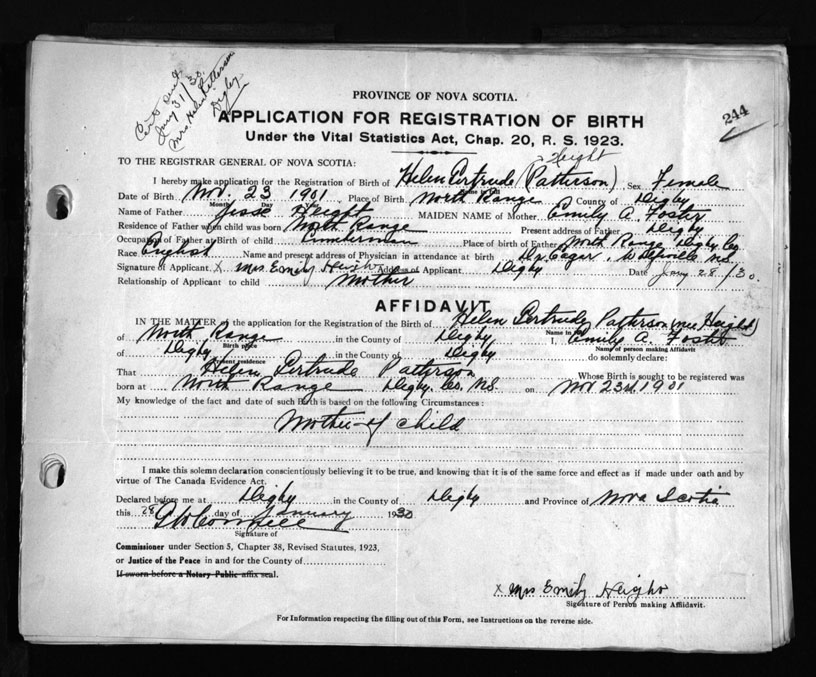 Cert sent
Jany 31/30.
Mrs. Helen Patterson
Digby
244
PROVINCE OF NOVA SCOTIA.
APPLICATION FOR REGISTRATION OF BIRTH
Under the Vital Statistics Act, Chap. 20, R. S. 1923.
TO THE REGISTRAR GENERAL OF NOVA SCOTIA:
Height
I hereby make application for the Registration of Birth of Helen Gertrude (Patterson) Sex Female
Name in full
Date of Birth Nov. 23 1901 Place of Birth North Range County of Digby
Month Day
Name of Father Jesse Height MAIDEN NAME of Mother Emily A. Foster
Residence of Father when child was born North Range Present address of Father Digby
Occupation of Father at Birth of child Lumberman Place of birth of Father North Range Digby Co.
Race English Name and present address of Physician in attendance at birth Dr. N.S.
Signature of Applicant X Mrs Emily Height Address of Applicant Digby Date Jany 28/30.
Relationship of Applicant to child Mother
AFFIDAVIT
IN THE MATTER of the application for the Registration of the Birth of Helen Gertrude Patterson (nee Height)
Name in full
of North Range in the County of Digby I, Emily A. Foster
Birth place Name of person making Affidavit
of Digby in the County of Digby do solemnly declare:
Present residence
That Helen Gertrude Patterson Whose Birth is sought to be registered was
born at North Range Digby Co. N.S. on Nov 23rd 1901
My knowledge of the fact and date of such Birth is based on the following Circumstances:
Mother of child
I make this solemn declaration conscientiously believing it to be true, and knowing that it is of the same force and effect as if made under oath and by
virtue of The Canada Evidence Act.
Declared before me at Digby in the County of Digby and Province of Nova Scotia
this 28 day of January 1930
Signature of
Commissioner under Section 5, Chapter 38, Revised Statutes, 1923,
or Justice of the Peace in and for the County of
If sworn before a Notary Public affix seal.
X Mrs Emily Height
Signature of Person making Affidavit.
For Information respecting the filling out of this Form, see Instructions on the reverse side.